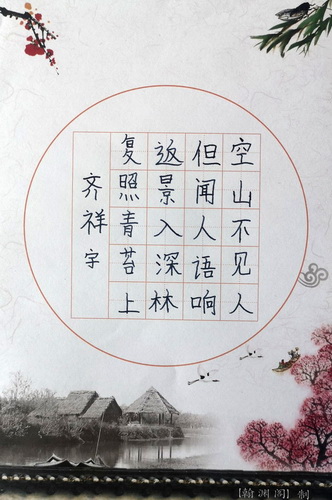 空山不见人
但闻人语响
返景入深林
复照青苔上
齐祥字
【翰渊阁】制